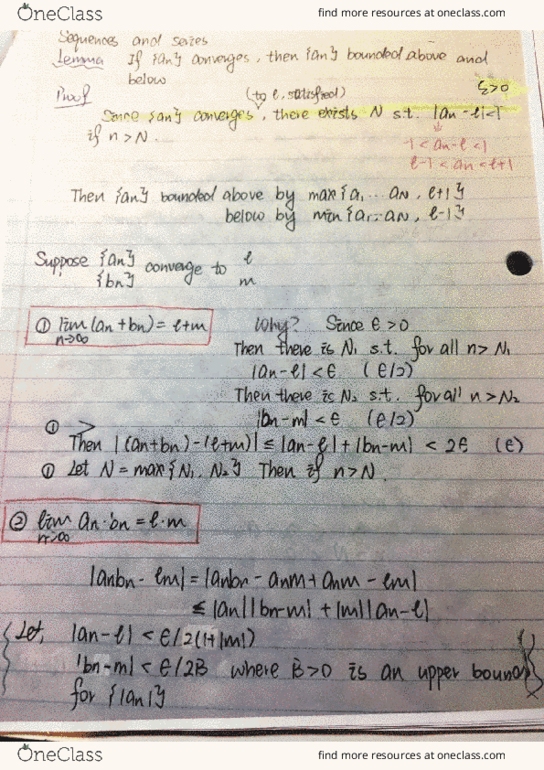 OneClass find more resources at oneclass.com
Sequences and seizes
Lemma If {an} converges, then {an} bounded above and
below
(to ℓ, satisfied) ε>0
Proof
Since {an} converges, there exists N s.t. |an-ℓ|<1
if n>N.
-1<an-ℓ<1
ℓ-1<an<ℓ+1
Then {an} bounded above by max{a1...aN, ℓ+1}
below by min{a1...aN, ℓ-1}
Suppose {an} converge to ℓ
{bn} m
① lim(an+bn)=ℓ+m Why? Since ϵ>0
n→∞
Then there is N1 s.t. for all n>N1
|an-ℓ|<ϵ (ϵ/2)
Then there is N2 s.t. for all n>N2
|bn-m|<ϵ (ϵ/2)
① >
Then |(an+bn)-(ℓ+m)|≤|an-ℓ|+|bn-m|<2ϵ (ϵ)
① Let N=max{N1, N2} Then if n>N.
② lim an·bn=ℓ·m
n→∞
|anbn-ℓm|=|anbn-anm+anm-ℓm|
≤|an||bn-m|+|m||an-ℓ|
Let, |an-ℓ|<ϵ/2(1+|m|)
|bn-m|<ϵ/2B where B>0 is an upper bound
for {|an|}
OneClass find more resources at oneclass.com